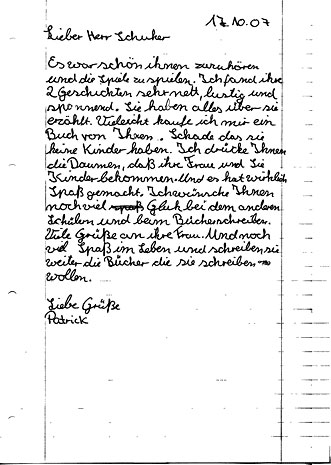 17.10.07
Lieber Herr Schuker
Es war schön ihnen zuzuhören
und die Spiele zu spielen. Ich fand ihre
2 Geschichten sehr nett, lustig und
spannend. Sie haben alles über sie
erzählt. Vieleicht kaufe ich mir ein
Buch von Ihnen. Schade das sie
keine Kinder haben. Ich drücke Ihnen
die Daumen, daß ihre Frau und Sie
Kinder bekommen. Und es hat wirklich
Spaß gemacht. Ich wünsche Ihnen
noch viel Glük bei dem anderen
Schülen und beim Bücherschreiben.
Viele Grüße an ihre Frau. Und noch
viel Spaß im Leben und schreiben sie
weiter die Bücher die sie schreiben
wollen.
Liebe Grüße
Patrick